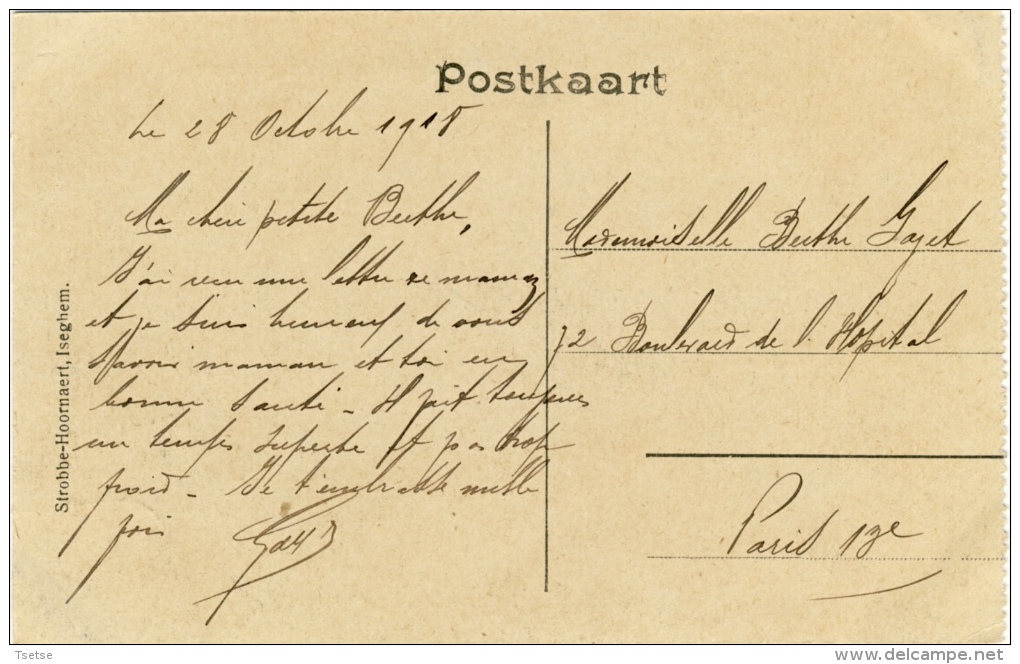 Postkaart
Le 28 Octobre 1918
Ma chérie petite Berthe,
J'ai reçu une lettre de maman
et je suis heureux de vous
savoir maman et toi en
bonne santé - Il fait toujours
un temps superbe et pas trop
froid - Je t'embrasse mille
fois
Mademoiselle Berthe Gayet
72 Boulevard de l'Hôpital
Paris 13e
Strobbe-Hoornaert, Iseghem.
Tsetse
delcampe.net